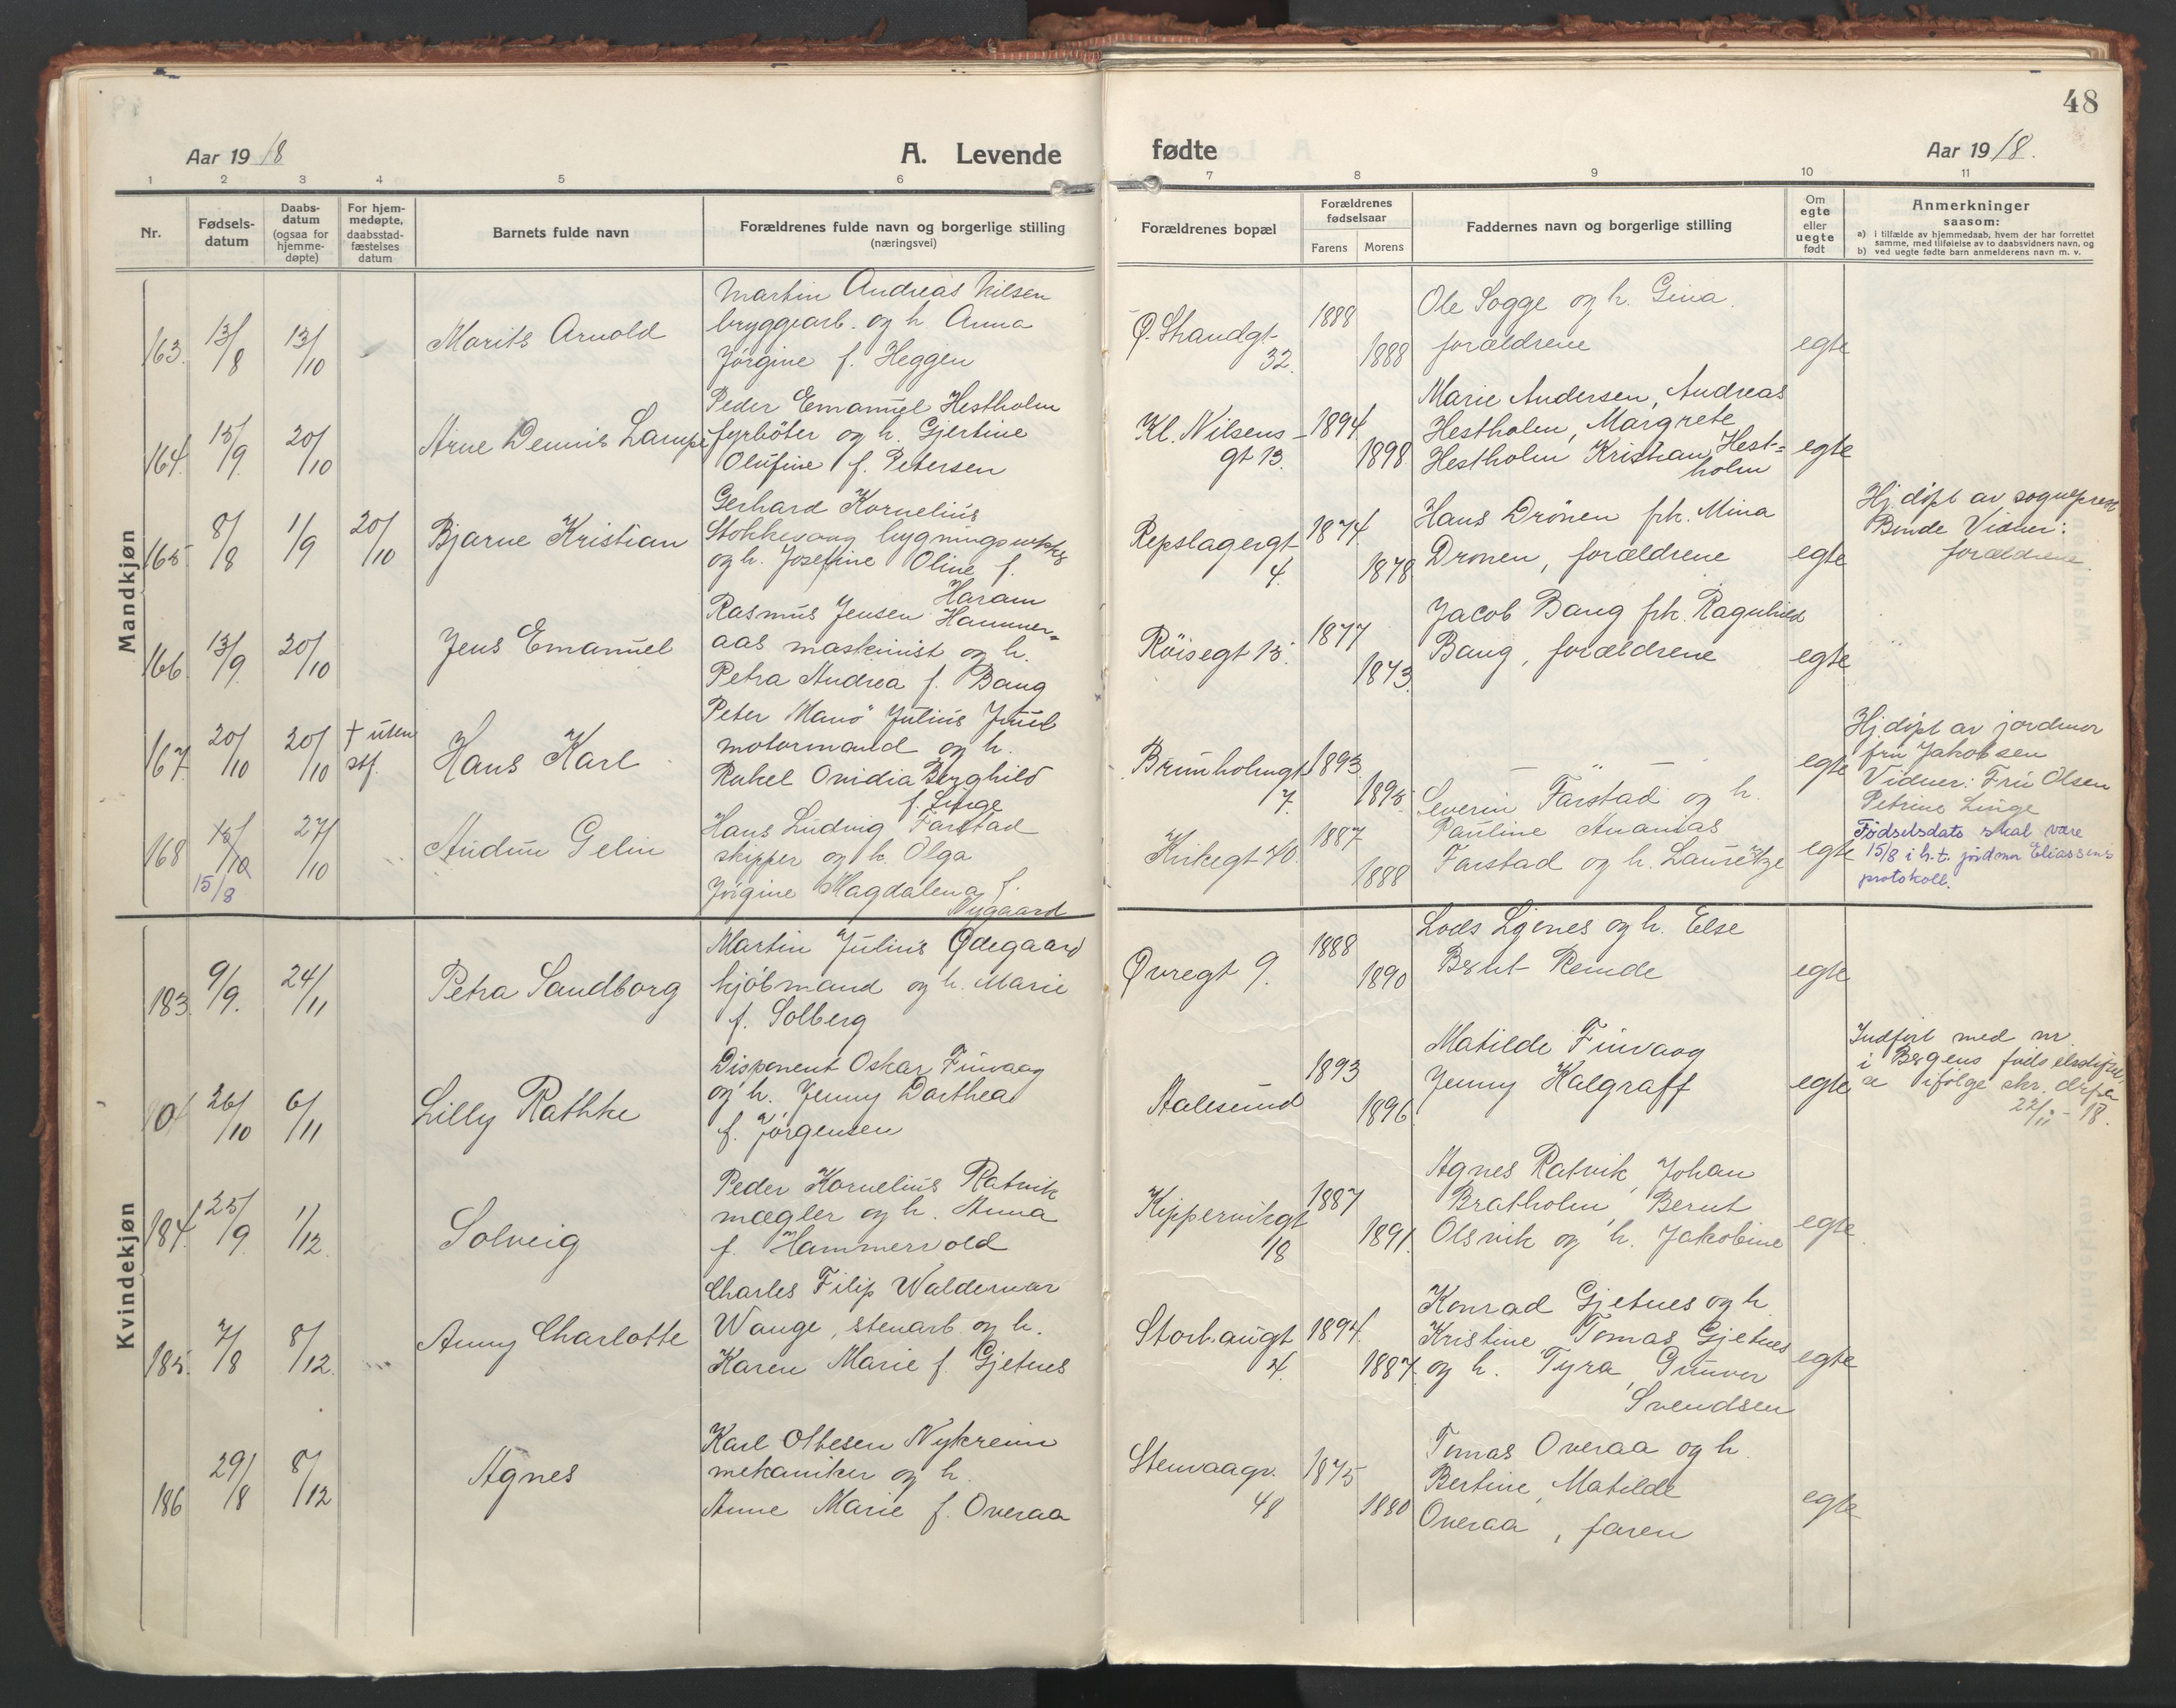 48
Aar 1918
A. Levende fødte
Aar 1918.
1 2 3 4 5 6 7 8 9 10 11
Nr.
Fødsels-
datum
Daabs-
datum
(ogsaa for
hjemme-
døpte)
For hjem-
medøpte,
daabsstad-
fæstelses
datum
Barnets fulde navn
Forældrenes fulde navn og borgerlige stilling
(næringsvei)
Forældrenes bopæl
Forældrenes
fødselsaar
Farens Morens
Faddernes navn og borgerlige stilling
Om
egte
eller
uegte
født
Anmerkninger
saasom:
a) i tilfælde av hjemmedaab, hvem der har forrettet
samme, med tilføielse av to daabsvidners navn, og
b) ved uegte fødte barn anmelderens navn m. v.
Mandkjøn
163. 13/8 13/10 Morits Arnold
Martin Andreas Nilsen
bryggearb. og h. Anna
Jørgine f. Heggen
Ø. Strandgt.
32.
1888 1888
Ole Sogge og h. Gina.
forældrene
egte
164. 15/9 20/10 Arne Dennis Lampe
Peder Emanuel Hestholm
fyrbøter og h. Gjertine
Olufine f. Petersen
Kl. Nilsens
gt 13.
1894 1898
Marie Andersen, Andreas
Hestholm, Margrete
Hestholm Kristian Hest=
holm
egte
165. 8/8 1/9 20/10 Bjarne Kristian
Gerhard Kornelius
Stokkevaag bygningssnekker
og h. Josefine Oline f.
Haram
Repslagergt
4.
1874 1878
Hans Drönen frk. Mina
Drönen, forældrene
egte
Hj.døpt av sogneprest
Bende Vidner:
forældrene.
166. 13/9 20/10 Jens Emanuel
Rasmus Jensen Hammer=
aas maskinist og h.
Petra Andrea f. Bang
Röisegt 15.
1877 1873.
Jacob Bang frk. Ragnhild
Bang, forældrene
egte
167. 20/10 20/10 † uten
stf.
Hans Karl
Peter Manö Julius Juul
motormand og h.
Rakel Ovidia Berghild
f. Linge
Brunholmgt
7.
1893 1895
— " —
egte
Hj.døpt av jordmor
fru Jakobsen
Vidner: Fru Olsen
Petrine Linge
168 15/10 27/10 Audun Gelin
15/8
Hans Ludvig Farstad
skipper og h. Olga
Jørgine Magdalena f.
Nygaard
Kirkegt 40.
1887 1888
Severin Farstad og h.
Pauline Ananias
Farstad og h. Lauretze
egte
Födselsdato skal være
15/8 i h.t. jordmor Eliassens
protokoll.
Kvindekjøn
183. 9/9. 24/11 Petra Sandborg
Martin Julius Ødegaard
kjöbmand og h. Marie
f. Solberg
Øvregt 9.
1888 1890
Lods Ljönes og h. Else
Berut Remde
egte
26/10 6/11 Lilly Rathke
Disponent Oskar Finvaag
og h. Jenny Dorthea
f. Jörgensen
Aalesund
1893 1896
Matilde Finvaag
Jenny Kalgraff
egte
Indført med nr.
i Bergens
ifölge skr.
22/11 - 18.
184. 25/9 1/12 Solveig
Peder Kornelius Ratvik
mægler og h. Anna
f. Hammervold
Kippervikgt
18
1887 1891.
Agnes Ratvik, Johan
Bratholm, Bernt
Olsvik og h. Jakobine
egte
185. 7/8 8/12 Anny Charlotte
Charles Filip Waldemar
Wange, stenarb og h.
Karen Marie f. Gjetnes
Storhaugt
4.
1894. 1887.
Konrad Gjetnes og h.
Kristine Tomas Gjetnes
og h. Tyra, Gunvor
Svendsen
egte
186 29/8 8/12 Agnes
Karl Olbesen Nykreim
mekaniker og h.
Anne Marie f. Overaa
Stenvaagv.
48
1875 1880
Tomas Overaa og h.
Bertine, Matilde
Overaa, faren
egte